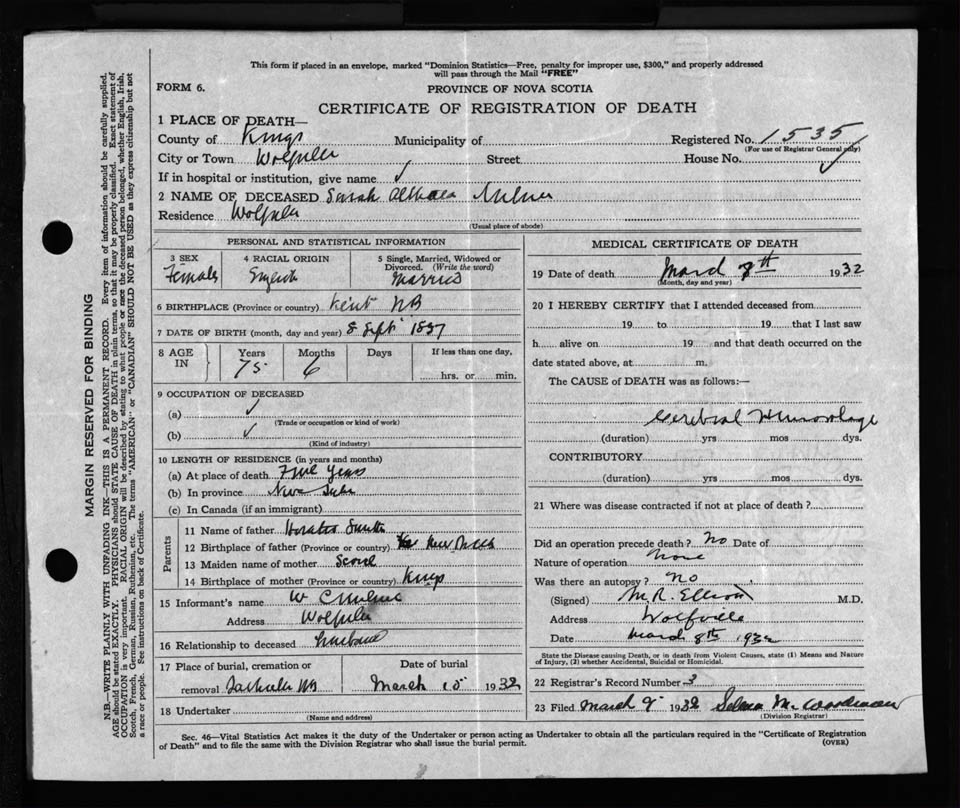 This form if placed in an envelope, marked "Dominion Statistics—Free, penalty for improper use, $300," and properly addressed
will pass through the Mail "FREE"
FORM 6.
PROVINCE OF NOVA SCOTIA
CERTIFICATE OF REGISTRATION OF DEATH
1 PLACE OF DEATH—
County of Kings Municipality of Registered No. 1535
(For use of Registrar General only)
City or Town Wolfville Street House No.
If in hospital or institution, give name ✓
2 NAME OF DECEASED Sarah Milner
Residence Wolfville
(Usual place of abode)
PERSONAL AND STATISTICAL INFORMATION
3 SEX 4 RACIAL ORIGIN 5 Single, Married, Widowed or Divorced. (Write the word)
Female English Married
6 BIRTHPLACE (Province or country) Kent NB
7 DATE OF BIRTH (month, day and year) 8 Sept
8 AGE IN Years Months Days If less than one day,
75 6 hrs. or min.
9 OCCUPATION OF DECEASED
(a) ✓
(Trade or occupation or kind of work)
(b) ✓
(Kind of industry)
10 LENGTH OF RESIDENCE (in years and months)
(a) At place of death Five Years
(b) In province
(c) In Canada (if an immigrant)
Parents
11 Name of father Horatio Smith
12 Birthplace of father (Province or country)
13 Maiden name of mother
14 Birthplace of mother (Province or country) Kings
15 Informant's name W C Milner
Address Wolfville
16 Relationship to deceased husband
17 Place of burial, cremation or Date of burial
removal Sackville NB March 10 1932
18 Undertaker
(Name and address)
MEDICAL CERTIFICATE OF DEATH
19 Date of death March 8th 1932
(Month, day and year)
20 I HEREBY CERTIFY that I attended deceased from
19 to 19 that I last saw
h alive on 19 and that death occurred on the
date stated above, at m.
The CAUSE of DEATH was as follows:—
Cerebral Hemorrhage
(duration) yrs mos dys.
CONTRIBUTORY
(duration) yrs. mos. dys.
21 Where was disease contracted if not at place of death?
Did an operation precede death? No Date of
Nature of operation None
Was there an autopsy? No
(Signed) M. R. Elliott M.D.
Address Wolfville
Date March 8th 1932
State the Disease causing Death, or in death from Violent Causes, state (1) Means and Nature
of Injury, (2) whether Accidental, Suicidal or Homicidal.
22 Registrar's Record Number 3
23 Filed March 9 1932 M. Woodman
(Division Registrar)
Sec. 46—Vital Statistics Act makes it the duty of the Undertaker or person acting as Undertaker to obtain all the particulars required in the "Certificate of Registration
of Death" and to file the same with the Division Registrar who shall issue the burial permit.
(OVER)
MARGIN RESERVED FOR BINDING
N.B.—WRITE PLAINLY WITH UNFADING INK—THIS IS A PERMANENT RECORD. Every item of information should be carefully supplied.
AGE should be stated EXACTLY. PHYSICIANS should STATE CAUSE OF DEATH in plain terms, so that it may be properly classified. Exact statement of
OCCUPATION is very important. RACIAL ORIGIN will be described by stating to what people or race the deceased person belonged, whether English, Irish,
Scotch, French, German, Russian, Ruthenian, etc. The terms "AMERICAN" or "CANADIAN" SHOULD NOT BE USED as they express citizenship but not
a race or people. See instructions on back of Certificate.